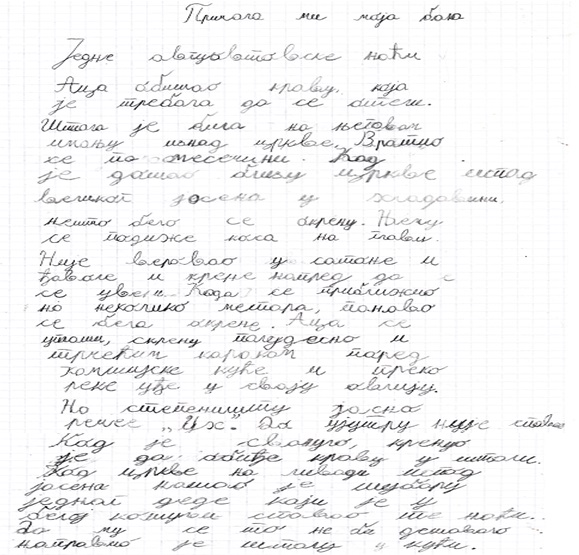 Причала ми моја бака
Једне августовске ноћи
Аца обишао краву, која
је требала да се отели.
Штала је била на његовом
имању изнад цркве. Вратио
се по месечини. Кад
је дошао близу цркве испод
великог јасена у хладовини,
нешто бело се окрену. Њему
се подиже коса на глави.
Није веровао у сотоне и
ђаволе и крене напред да
се увери. Када се приближио
на неколико метара, поново
се бела окрене. Аца се
уплаши, скрену полудесно и
трчећим кораком поред
комшијске куће и преко
реке уђе у своју авлију.
На степеништу јасно
рекее „Их". До ујутру није спавао
Кад је свануло, кренуо
је да обиђе краву у штали.
Код цркве на ливади испод
јасена нашао је шубару
једног деде који је у
белој кошуљи спавао те ноћи.
Да му се то не би дешавало
направио је шталу у кући.